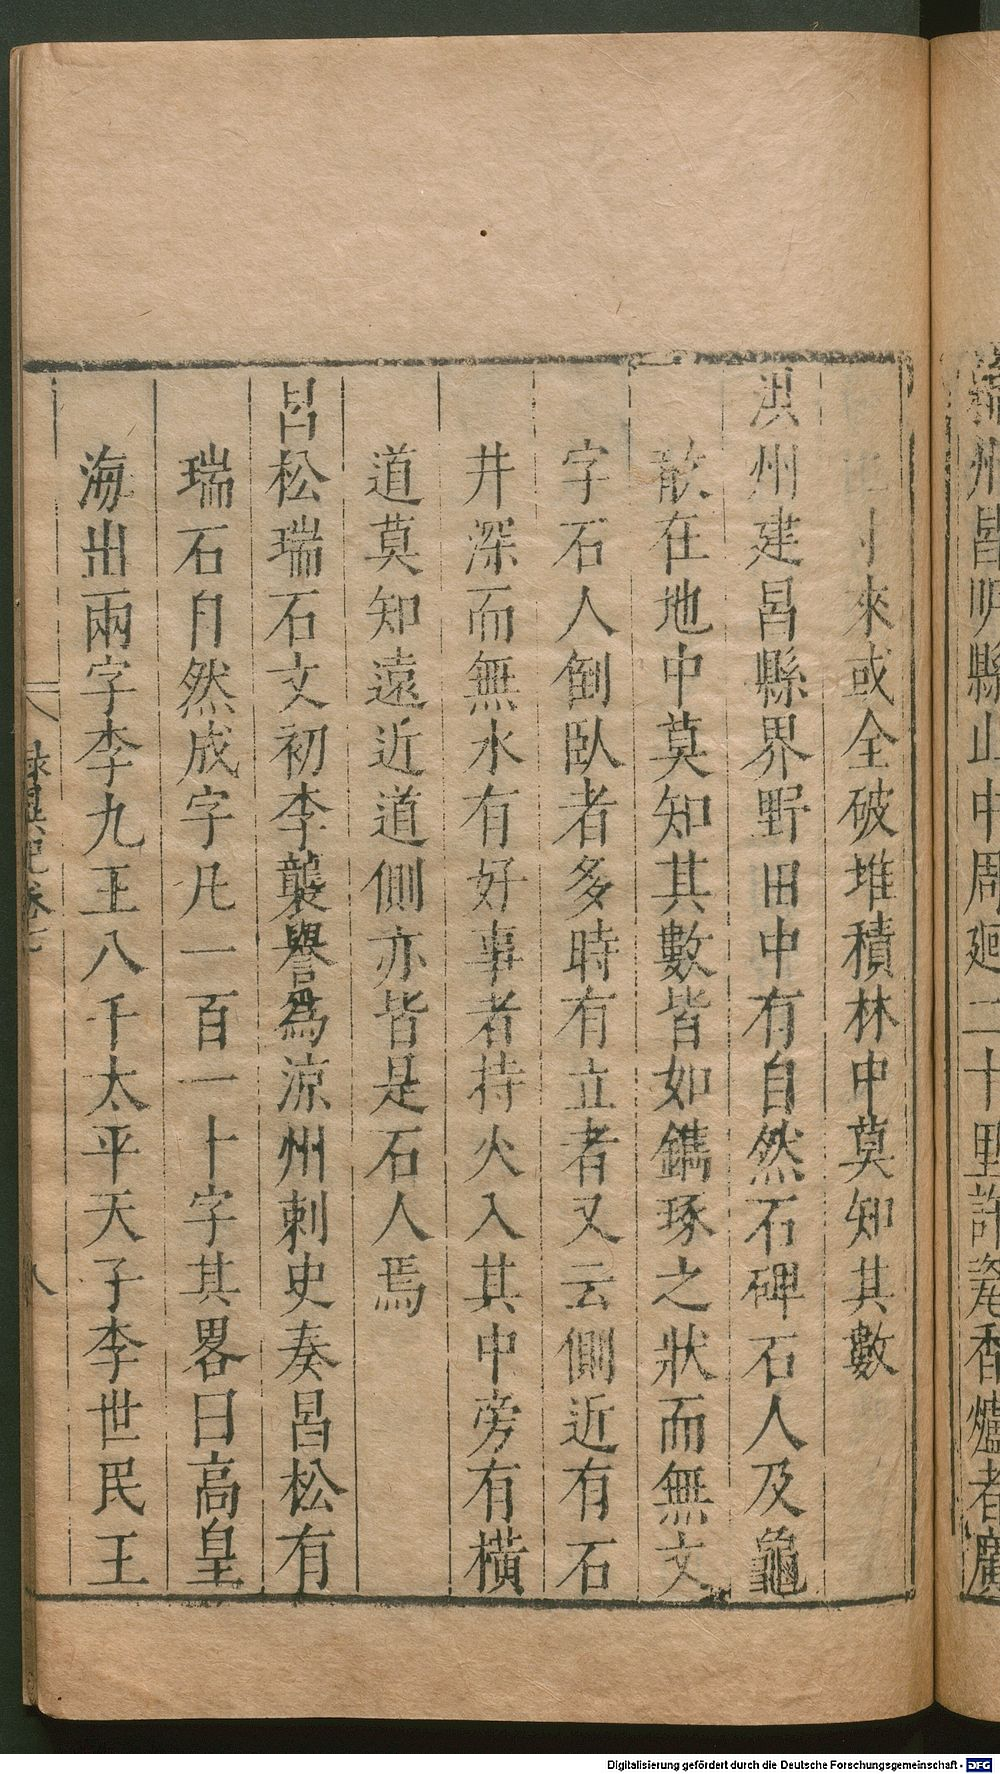 寸來或全破堆積林中莫知其數
洪州建昌縣界野田中有自然石碑石人及龜
散在地中莫知其數皆如鐫琢之狀而無文
字石人倒臥者多時有立者又云側近有石
井深而無水有好事者持火入其中旁有橫
道莫知遠近道側亦皆是石人焉
昌松瑞石文初李襲譽爲涼州刺史奏昌松有
瑞石自然成字凡一百一十字其畧曰高皇
海出兩字李九王八千太平天子李世民王
錄異記卷七
八
州皆明縣山中周廻二十里許瓷香爐者廣
Digitalisierung gefördert durch die Deutsche Forschungsgemeinschaft - DFG